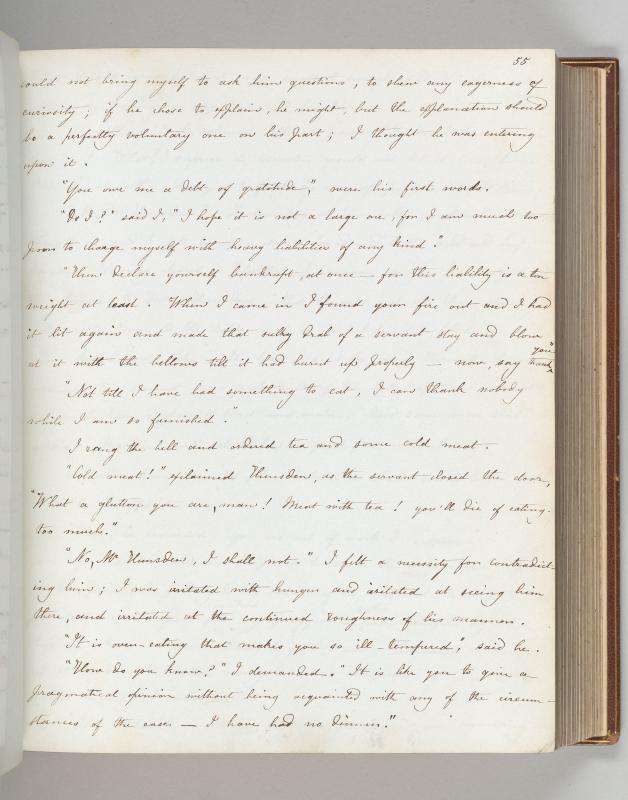 55
could not bring myself to ask him questions, to shew any eagerness of
curiosity; if he chose to explain, he might, but the explanation should
be a perfectly voluntary one on his part; I thought he was entering
upon it.
"You owe me a debt of gratitude", were his first words.
"Do I?" said I, "I hope it is not a large one, for I am much too
poor to charge myself with heavy liabilities of any kind".
"Then declare yourself bankrupt, at once — for this liability is a ton
weight at least. When I came in I found your fire out and I had
it lit again and made that sulky drab of a servant stay and blow
at it with the bellows till it had burnt up properly — now, say thank you"
"Not till I have had something to eat, I can thank nobody
while I am so famished."
I rang the bell and ordered tea and some cold meat.
"Cold meat!" exclaimed Hunsden, as the servant closed the door,
"What a glutton you are, man! Meat with tea! you'll die of eating
too much."
"No, Mr Hunsden, I shall not." I felt a necessity for contradict-
ing him; I was irritated with hunger and irritated at seeing him
there, and irritated at the continued roughness of his manner.
"It is over-eating that makes you so ill-tempered", said he.
"How do you know?" I demanded. "It is like you to give a
pragmatical opinion without being acquainted with any of the circum-
stances of the case — I have had no dinner."